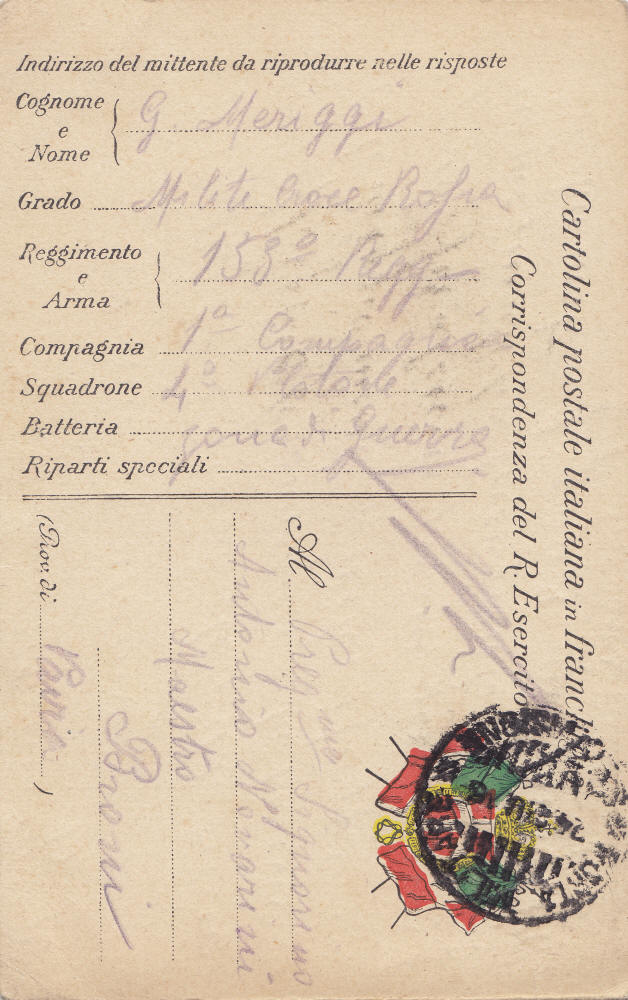 Indirizzo del mittente da riprodurre nelle risposte
Cognome
e
Nome
G. Meriggi
Grado Milite Croce Rossa
Reggimento
e
Arma
158° Regg.
Compagnia 1ª Compagnia
Squadrone 4°
Batteria zona di guerra
Riparti speciali
Cartolina postale italiana in franch
Corrispondenza del R. Esercito
Al Preg mo Signorino
Antonio
Maestro
Broni
(Prov. di Pavia)